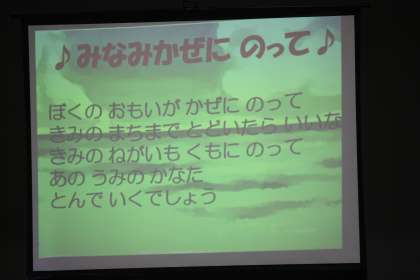 ♪みなみかぜに のって♪
ぼくの おもいが かぜに のって
きみの まちまで とどいたら いいな
きみの ねがいも くもに のって
あの うみの かなた
とんで いくでしょう